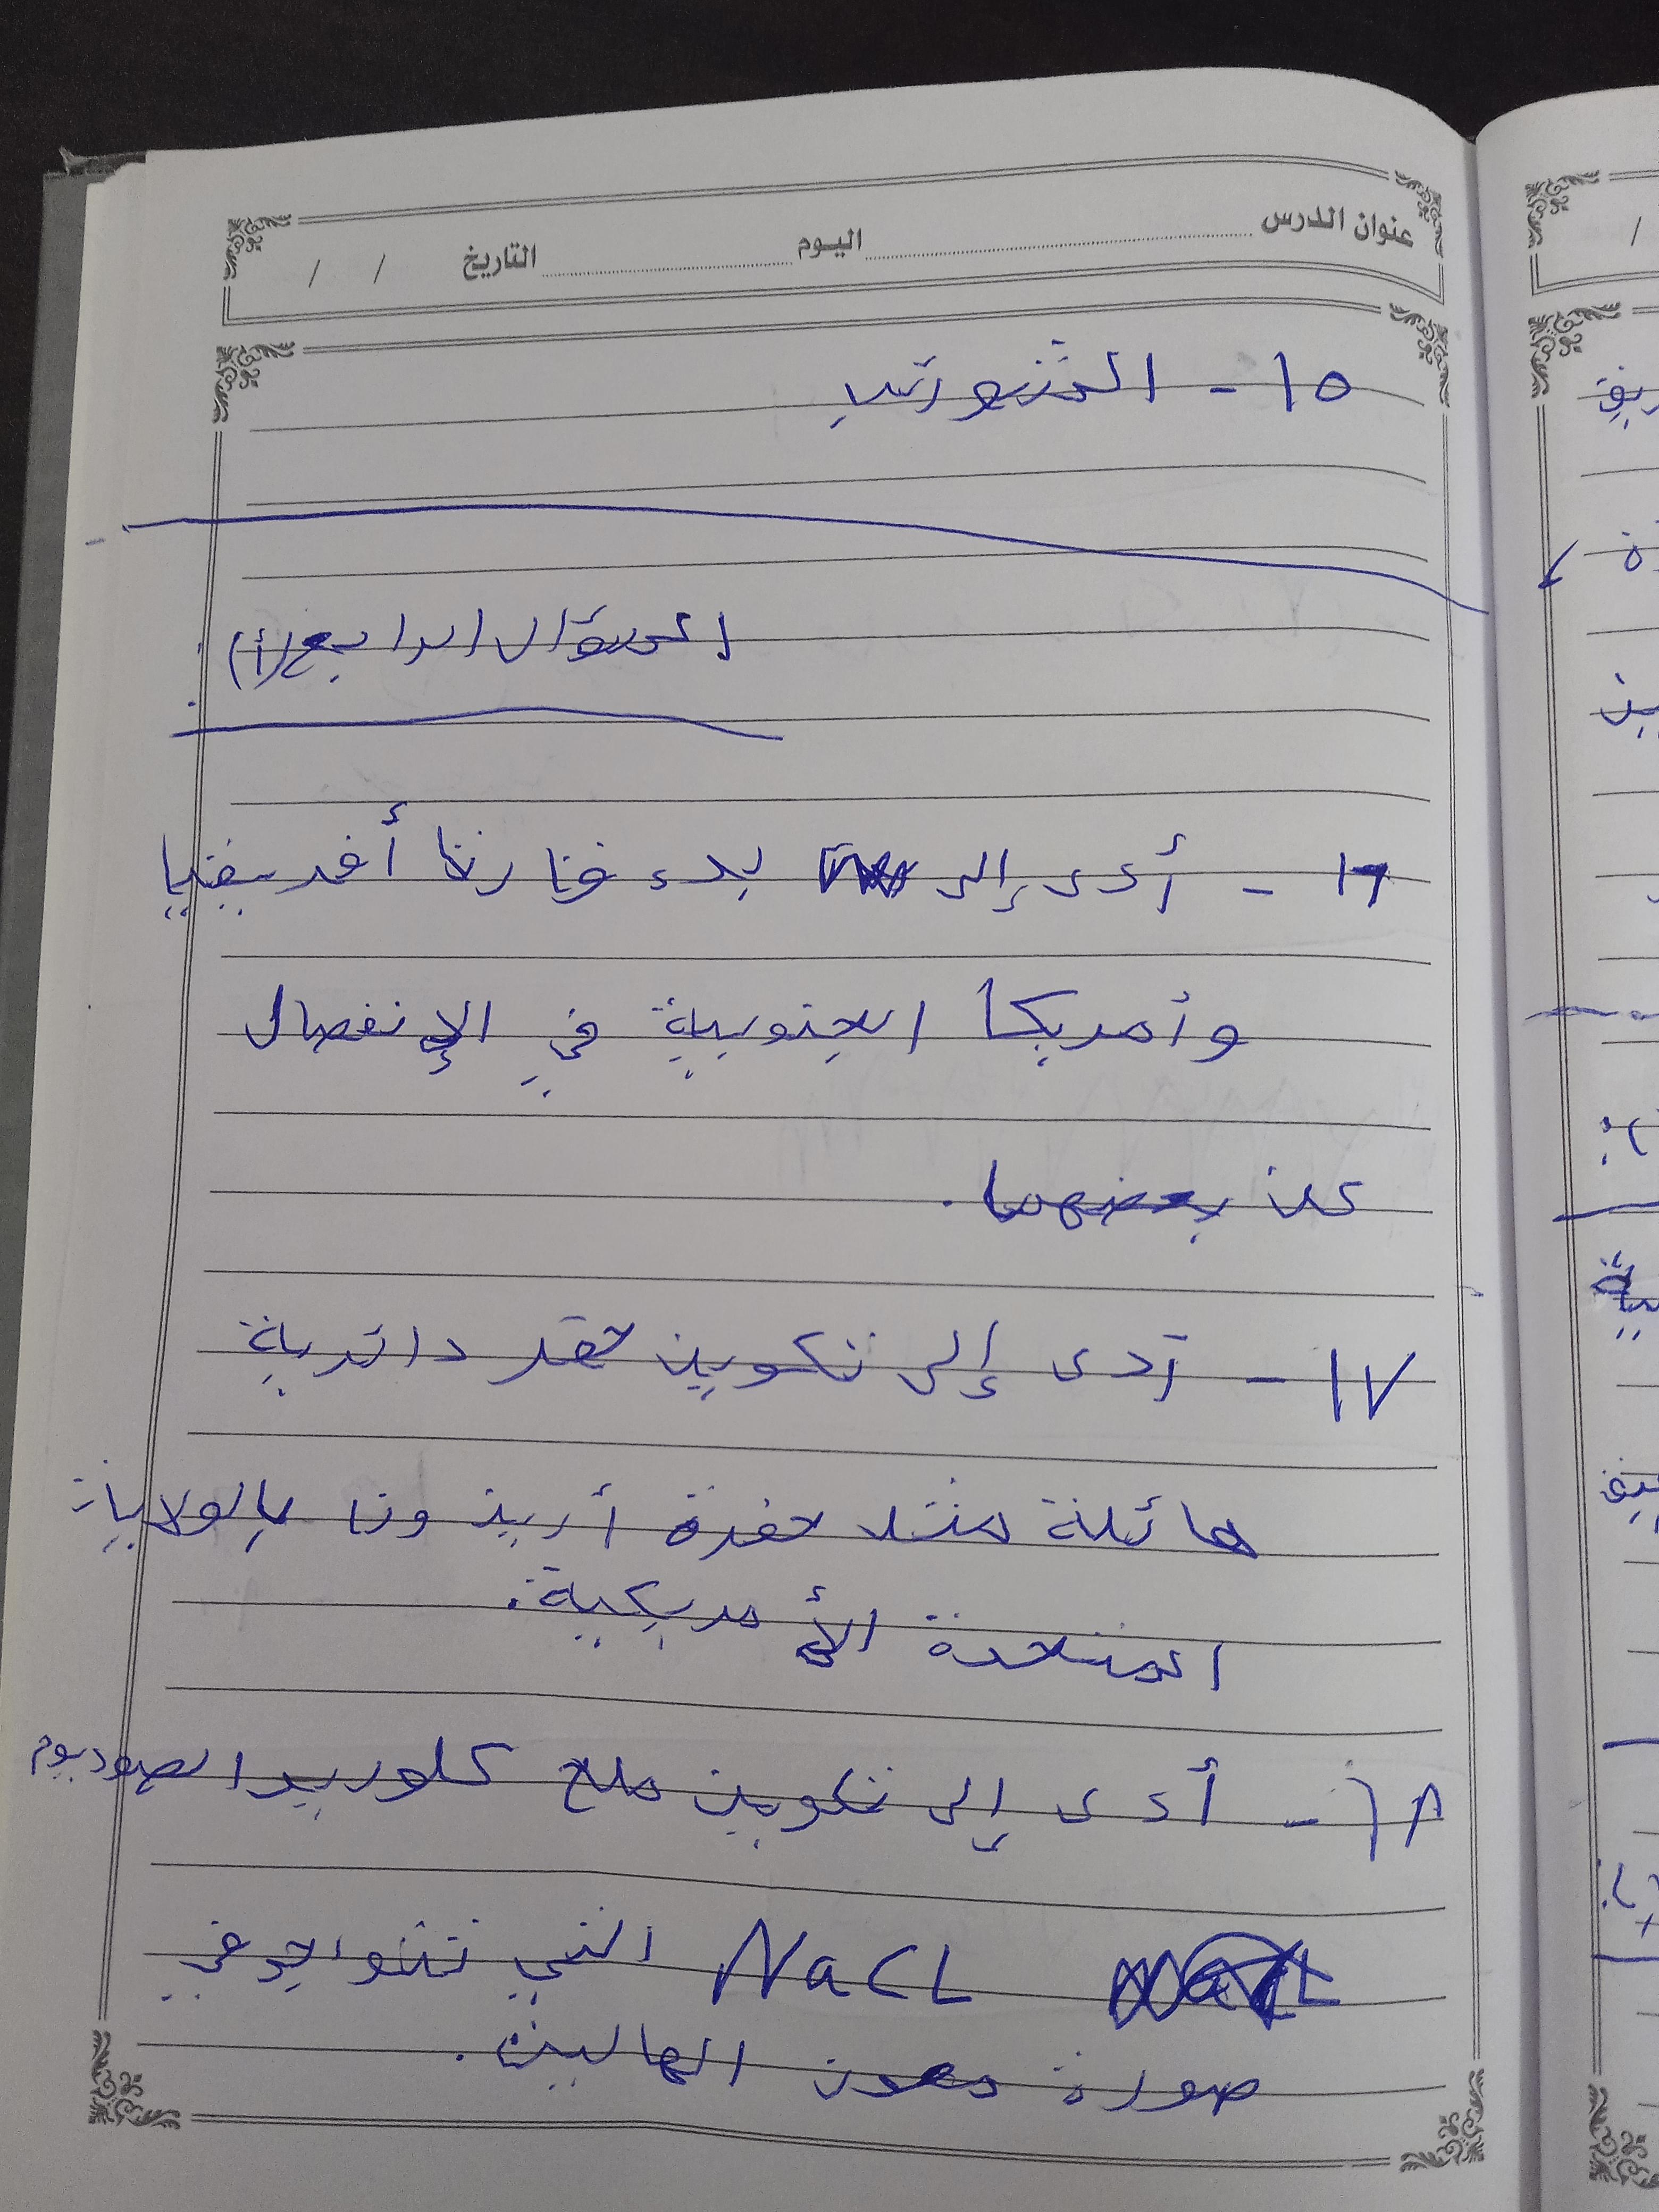 عنوان الدرس اليوم التاريخ / /
١٥ - الشورتس
السؤال الرابع (أ) :
١٦ - أدى إلى بدء قارتا أفريقيا
وأمريكا الجنوبية في الإنفصال
عن بعضهما .
١٧ - تدى إلى تكوين حفر دائرية
هائلة مثل حفرة أريزونا بالولايات
المتحدة الأمريكية .
١٨ - أدى إلى تكوين ملح كلوريد الصوديوم
NaCL التي تتواجد في
صورة معدن الهاليت .